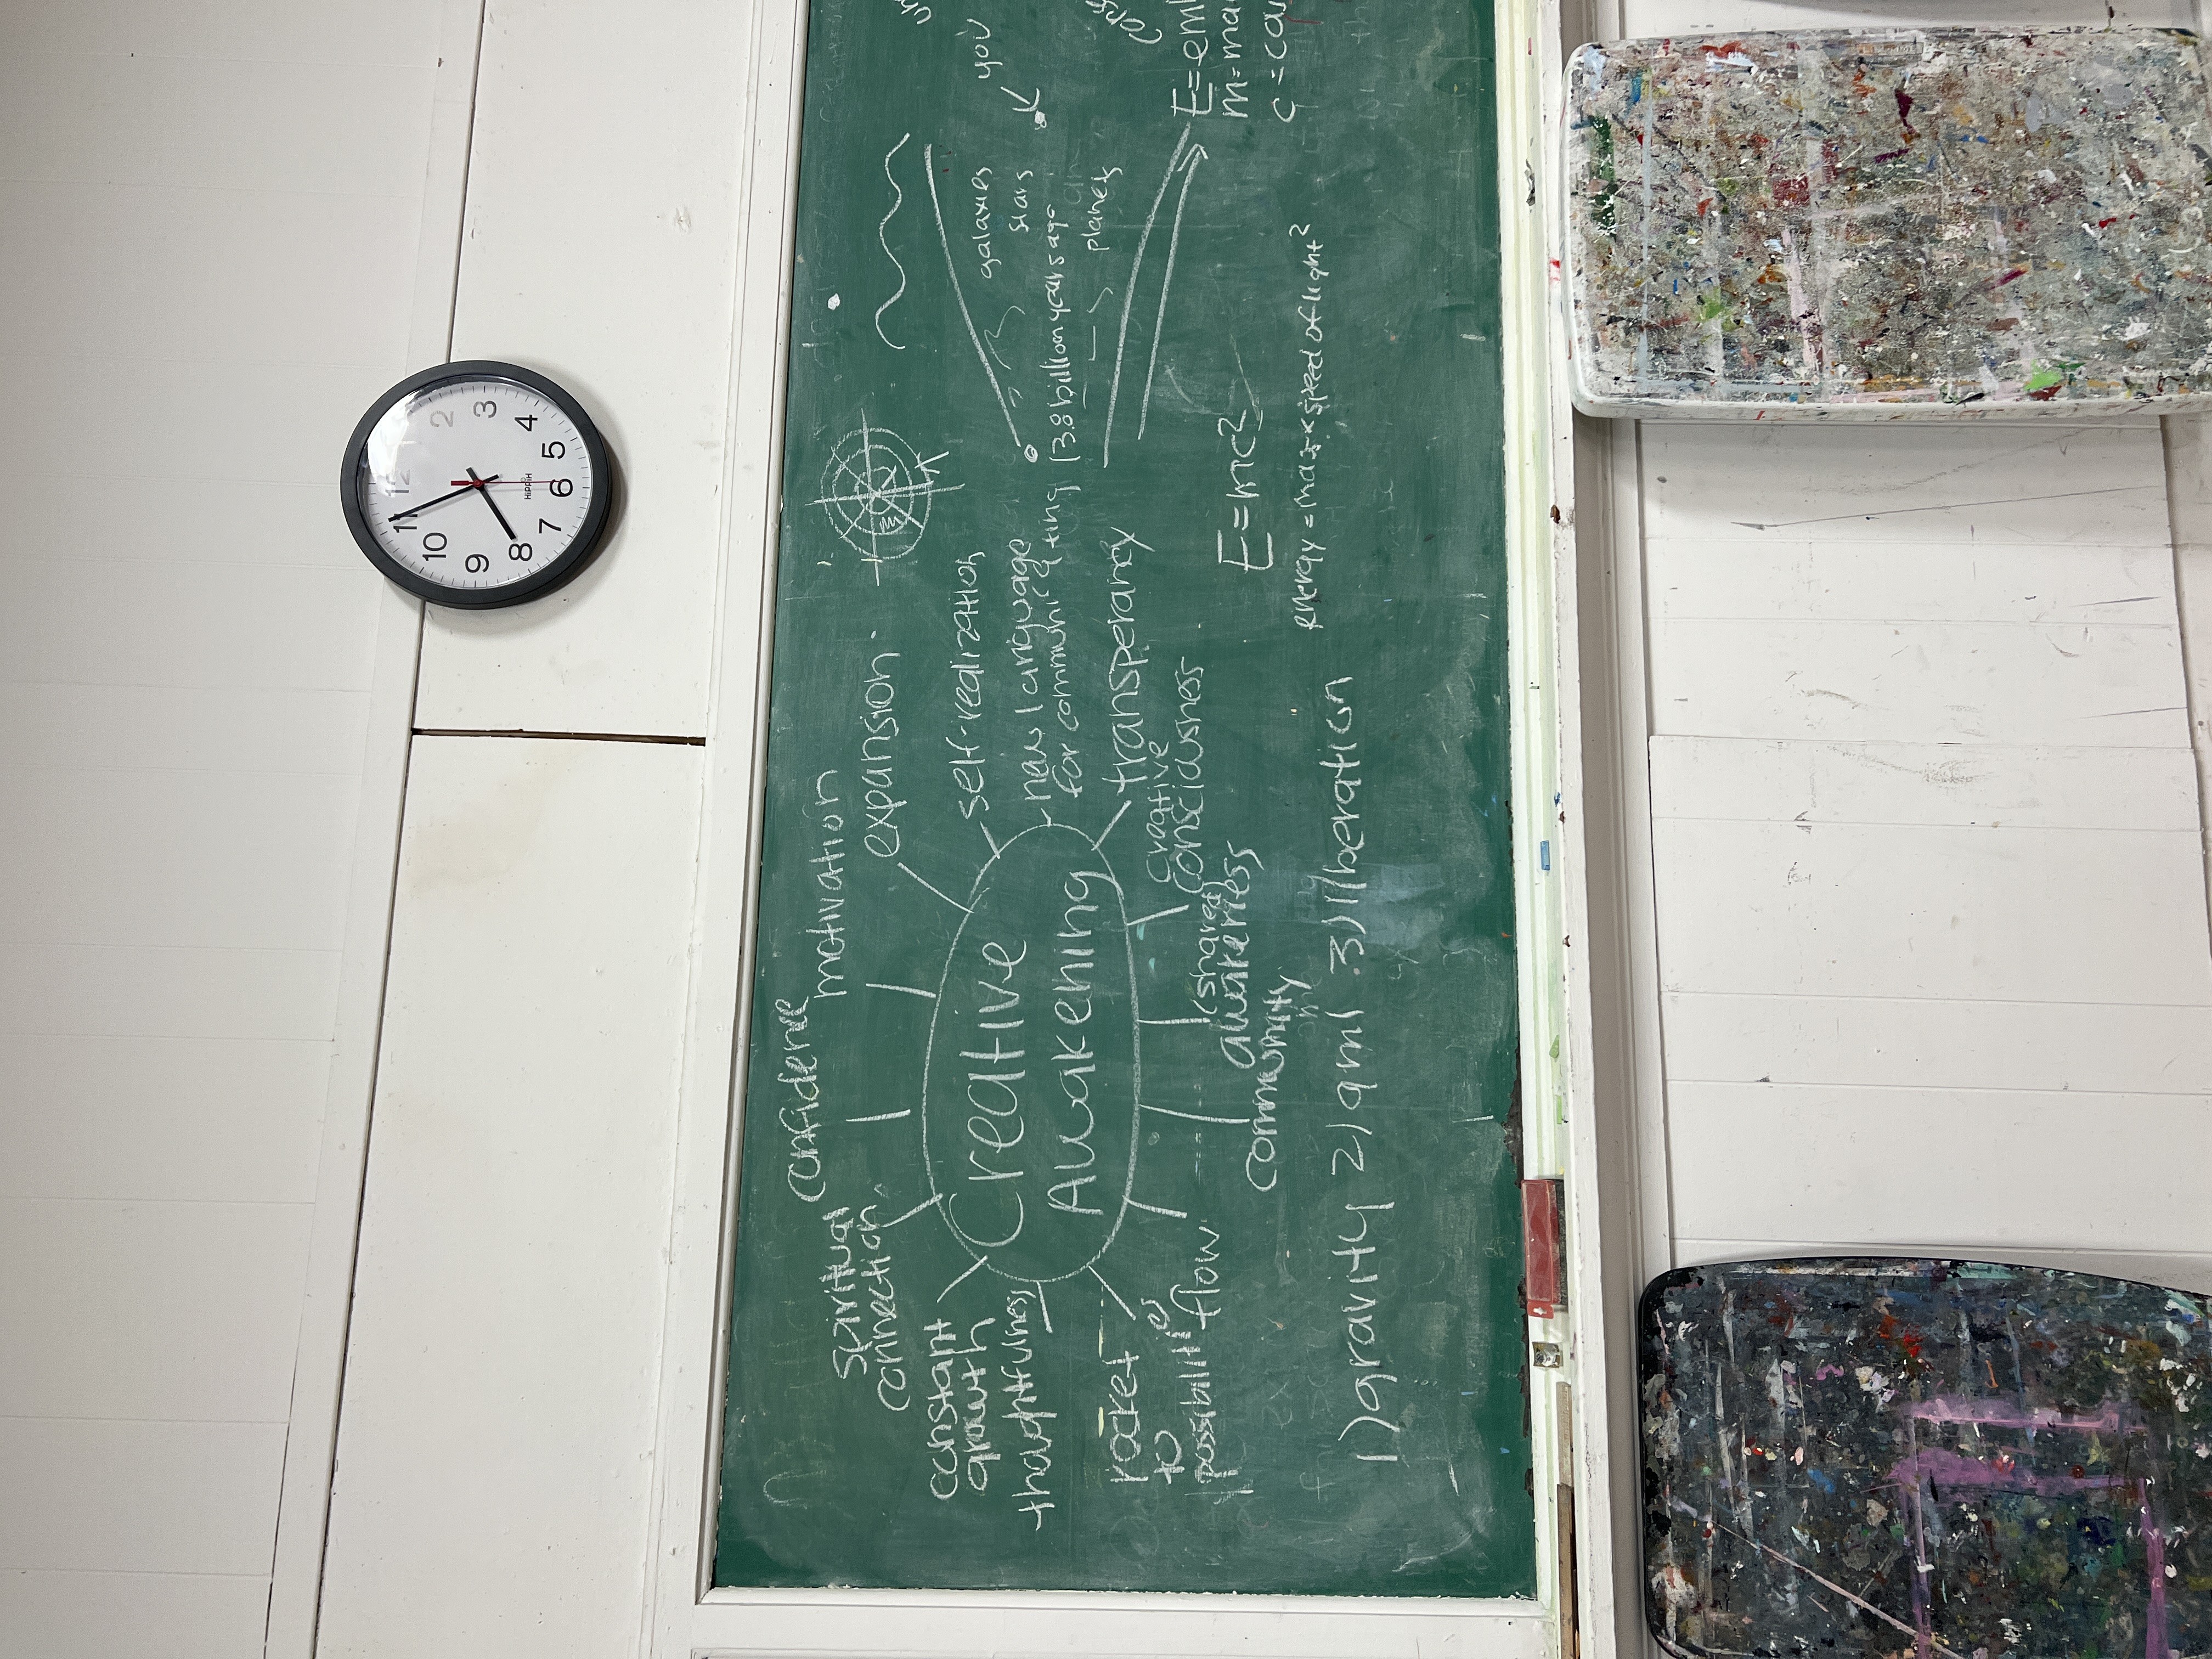 12
1
2
3
4
5
6
7
8
9
10
11
HIPPIH
confidence
motivation
spiritual
connection
expansion
constant
growth
self-realization
thoughtfulness
Creative
Awakening
new language
for communicating
rocket
to
possibilities
transperancy
creative
consciousness
flow
(shared)
awareness
community
1) gravity 2) qml 3) liberation
galaxies
stars
13.8 billion years ago
planets
you
E=mc²
energy = mass x speed of light²
E=em
m=ma
c=ca